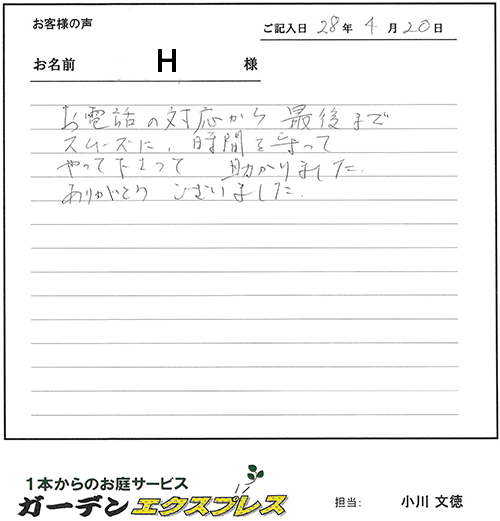 お客様の声
ご記入日 28年 4月20日
お名前 H 様
お電話の対応から 最後まで
スムーズに、時間を守って
やってたもって 助かりました.
ありがとう ございました.
1本からのお庭サービス
ガーデンエクスプレス
担当: 小川 文徳